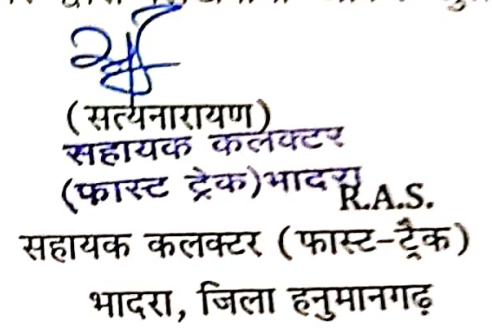 (सत्यनारायण)
सहायक कलक्टर
(फास्ट ट्रेक)भादरा
R.A.S.
सहायक कलक्टर (फास्ट-ट्रैक)
भादरा, जिला हनुमानगढ़